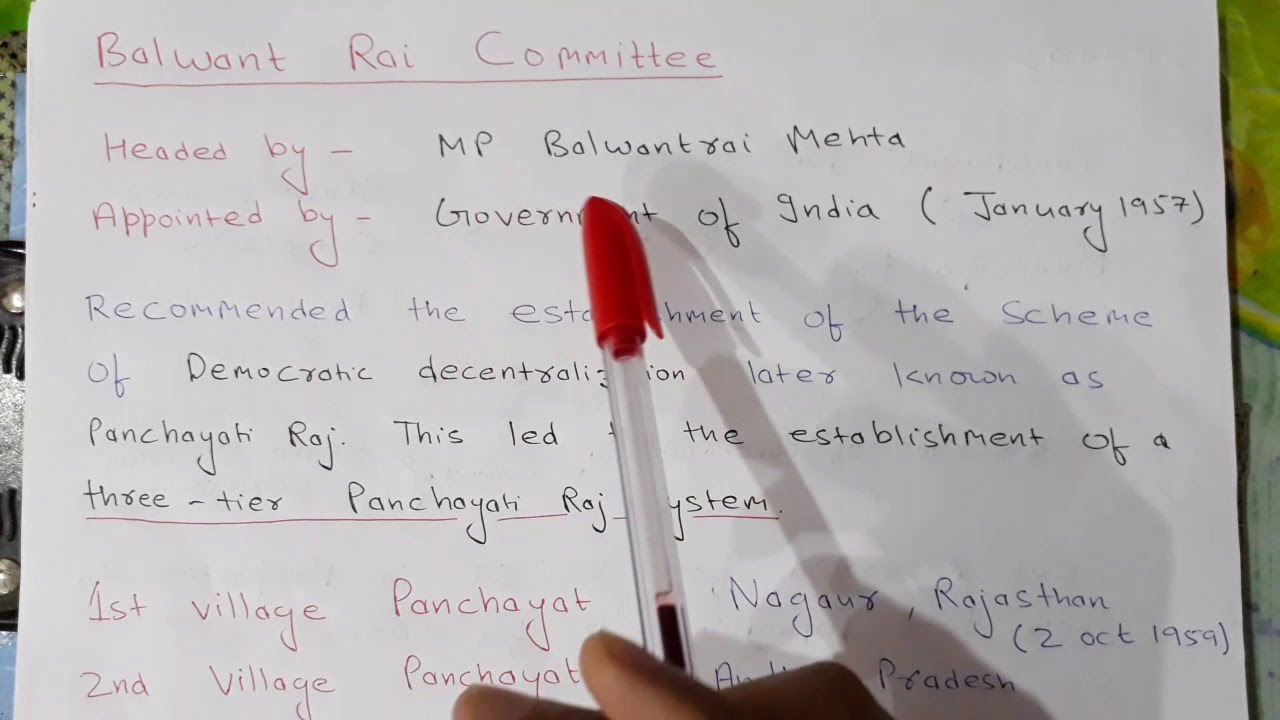 Balwant Rai Committee
Headed by - MP Balwantrai Mehta
Appointed by - Government of India ( January 1957)
Recommended the establishment of the Scheme
of Democratic decentralization later known as
Panchayati Raj. This led the establishment of a
three-tier Panchayati Raj System.
1st village Panchayat Nagaur, Rajasthan
(2 oct 1959)
2nd Village Panchayat Pradesh